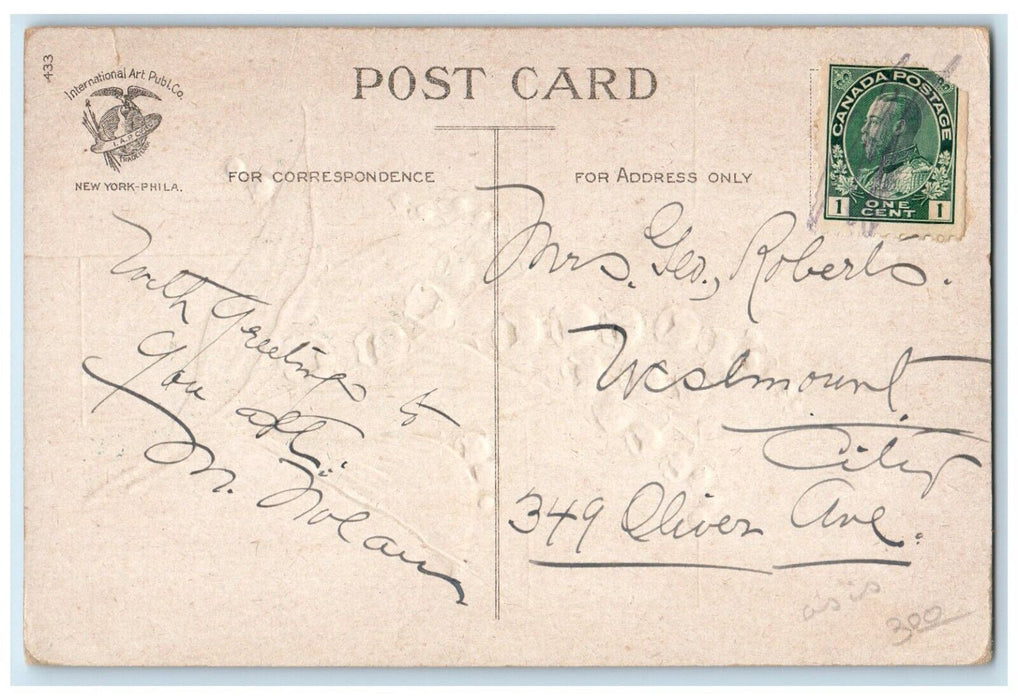 433
International Art Publ. Co.
I.A.P.C.
TRADEMARK
NEW YORK-PHILA.
POST CARD
FOR CORRESPONDENCE
FOR ADDRESS ONLY
CANADA POSTAGE
1 ONE CENT 1
With Greetings to
you all.
M. Nolan
Mrs. Geo., Roberts.
Westmount,
City
349 Oliver Ave.
as is
300